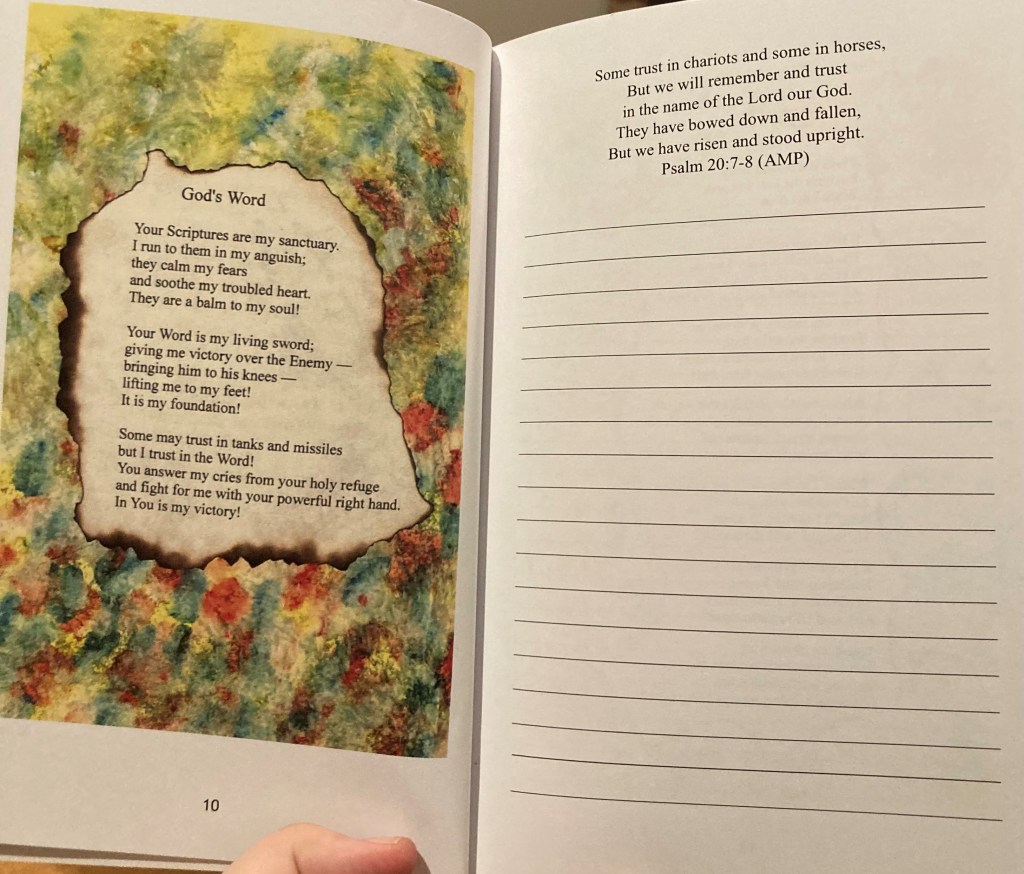 God's Word
Your Scriptures are my sanctuary.
I run to them in my anguish;
they calm my fears
and soothe my troubled heart.
They are a balm to my soul!
Your Word is my living sword;
giving me victory over the Enemy —
bringing him to his knees —
lifting me to my feet!
It is my foundation!
Some may trust in tanks and missiles
but I trust in the Word!
You answer my cries from your holy refuge
and fight for me with your powerful right hand.
In You is my victory!
10
Some trust in chariots and some in horses,
But we will remember and trust
in the name of the Lord our God.
They have bowed down and fallen,
But we have risen and stood upright.
Psalm 20:7-8 (AMP)